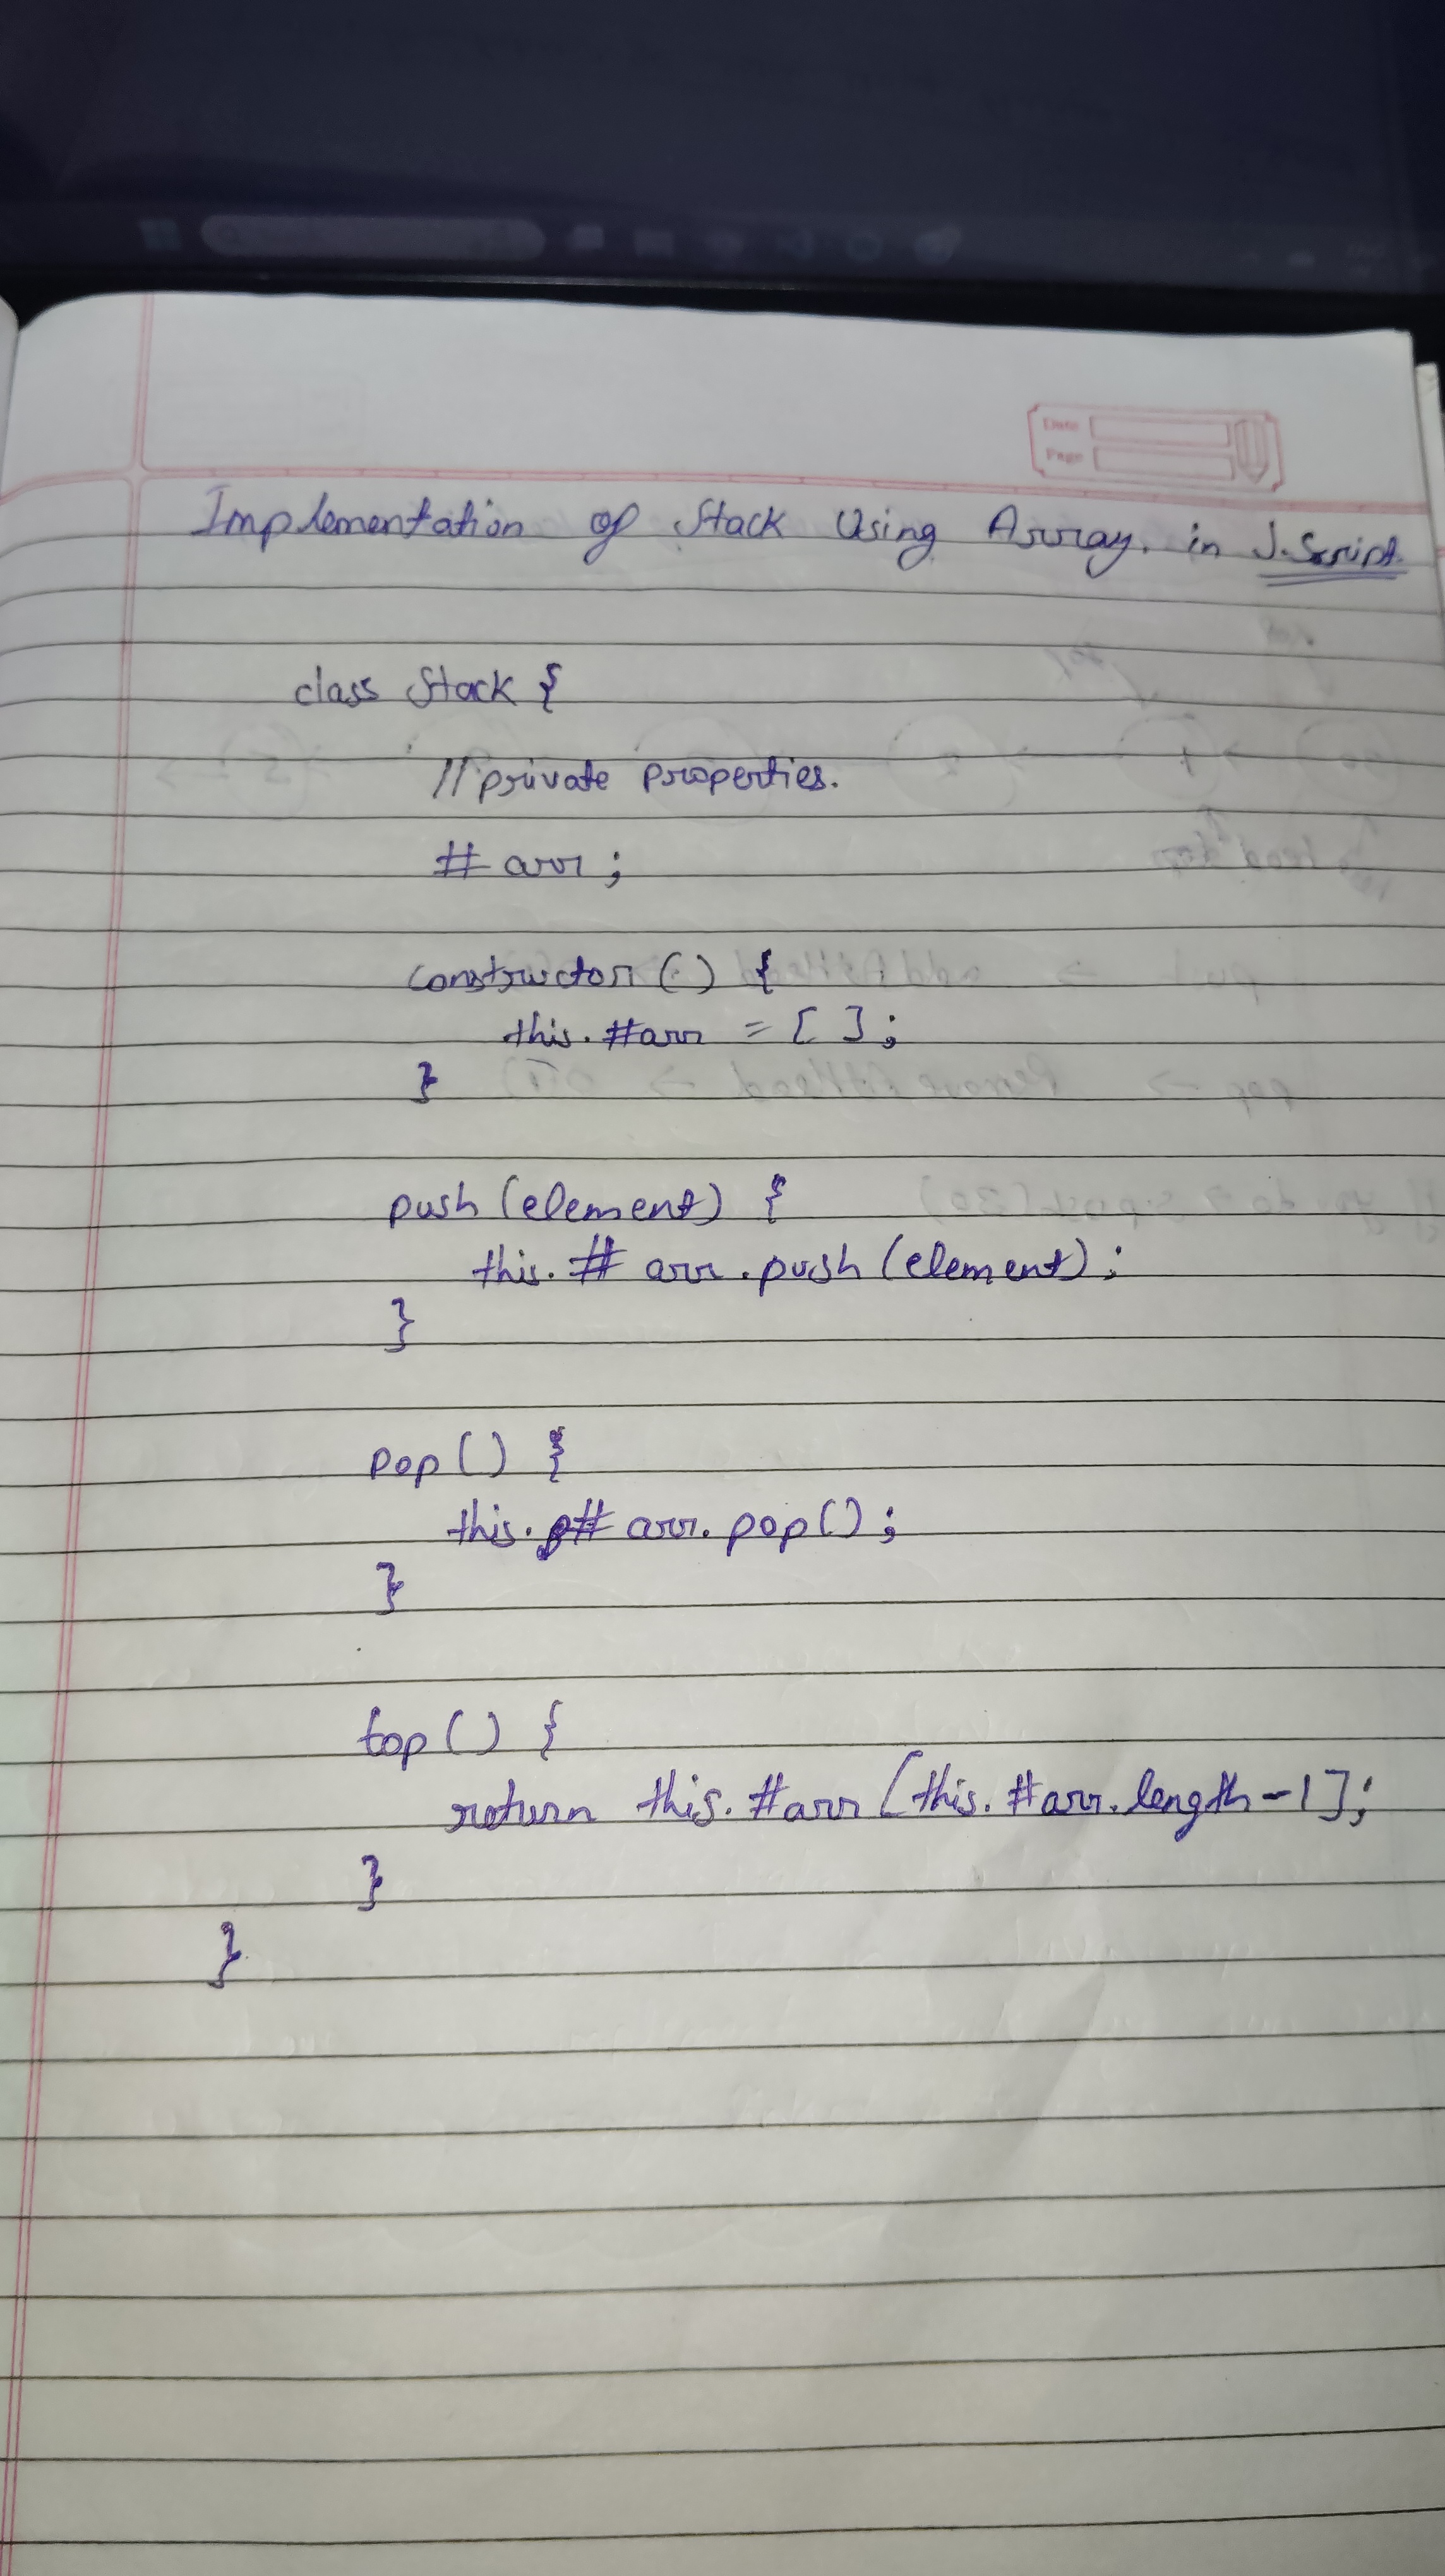 Date
Page
Implementation of Stack Using Array. in J.Script.
class Stack {
//private properties.
# arr ;
constructor () {
this. #arr = [ ] ;
}
push (element) {
this. # arr .push (element) ;
}
pop () {
this. # arr. pop () ;
}
top () {
return this. #arr [this. #arr. length -1] ;
}
}